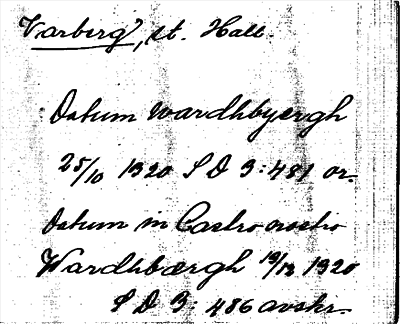 Varberg, st. Hall.
Datum wardhbyergh
25/10 1320 S D 3: 481 or.
Datum in Castro nostro
Wardhbærgh 19/12 1320
S D 3: 486 avskr.